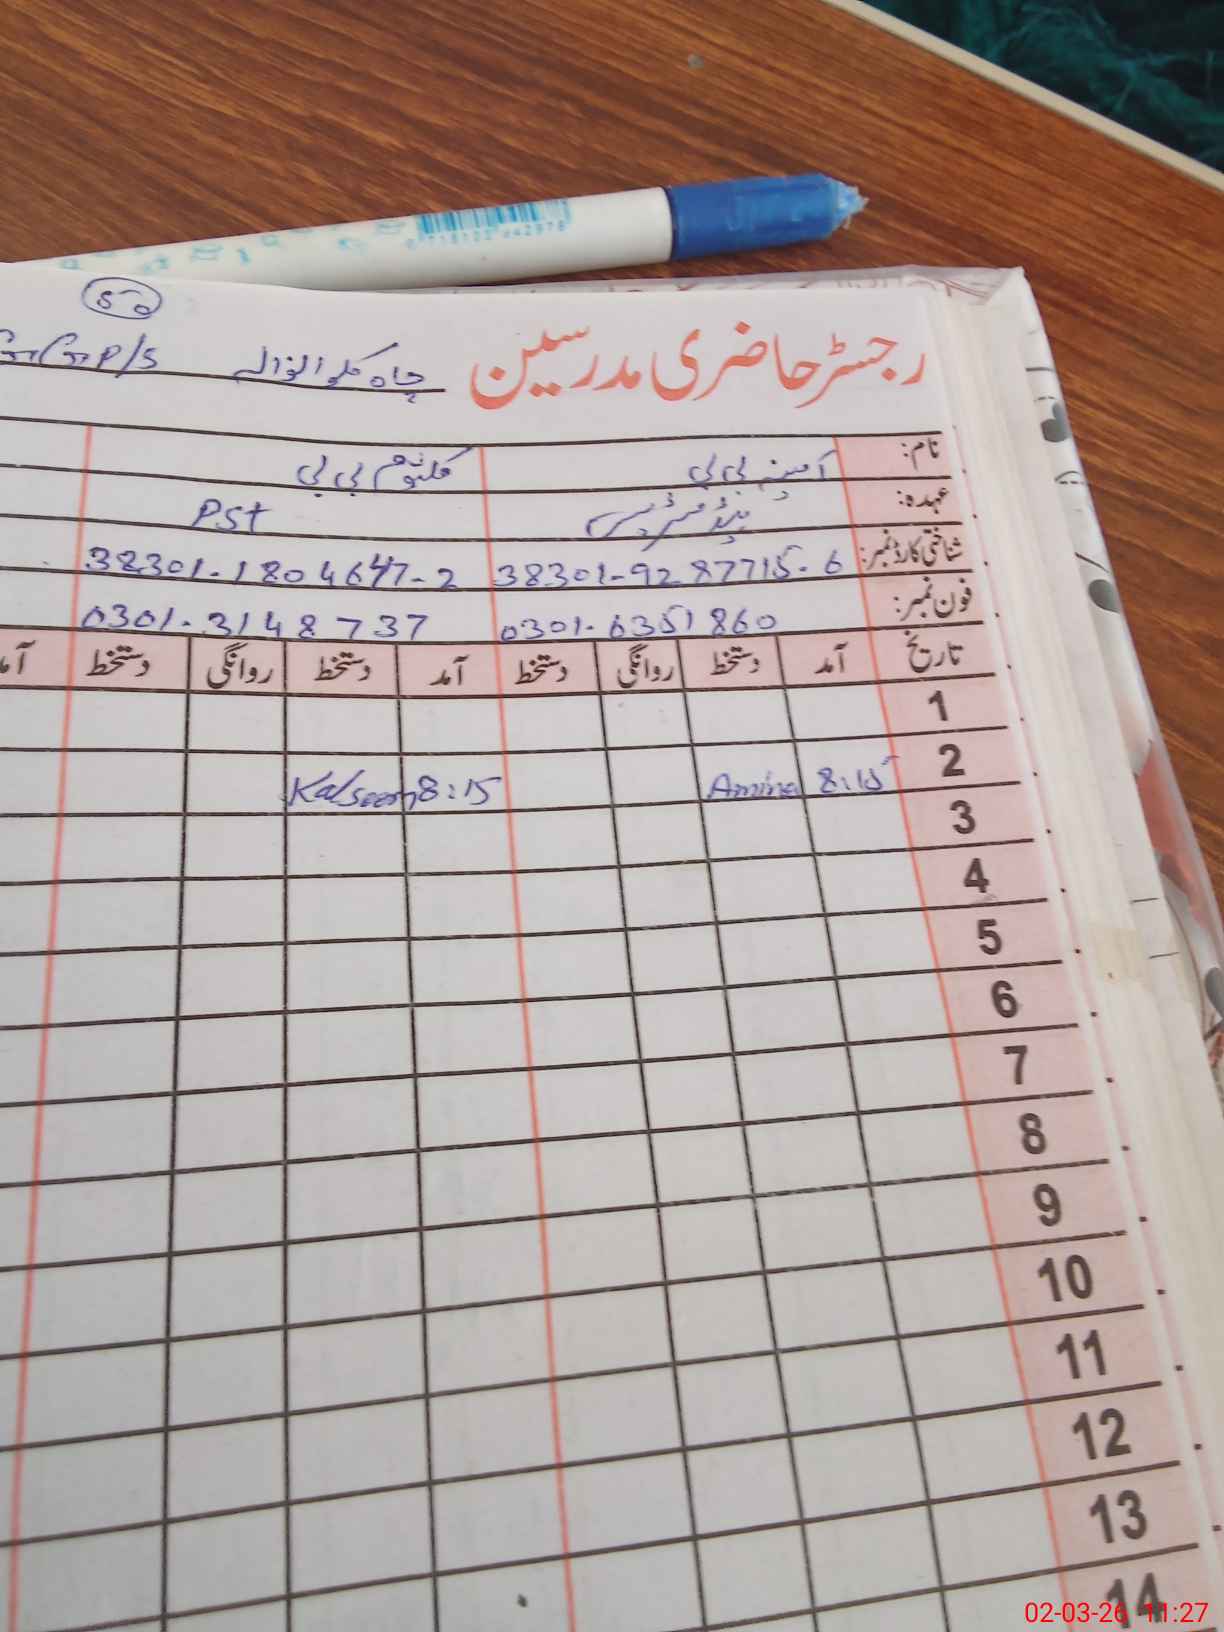 50
GGP/S چاہ کلو انوالہ رجسٹر حاضری مدرسین
نام: آمینہ بی بی کلثوم بی بی
عہدہ: ہیڈ مسٹریس PST
شناختی کارڈ نمبر: 38301-9287715-6 38301-1804647-2
فون نمبر: 0301-6351860 0301-3148737
تاریخ آمد دستخط روانگی دستخط آمد دستخط روانگی دستخط آمد
1
2 8:15 Amina 8:15 Kalsoom
3
4
5
6
7
8
9
10
11
12
13
14
02-03-26 11:27